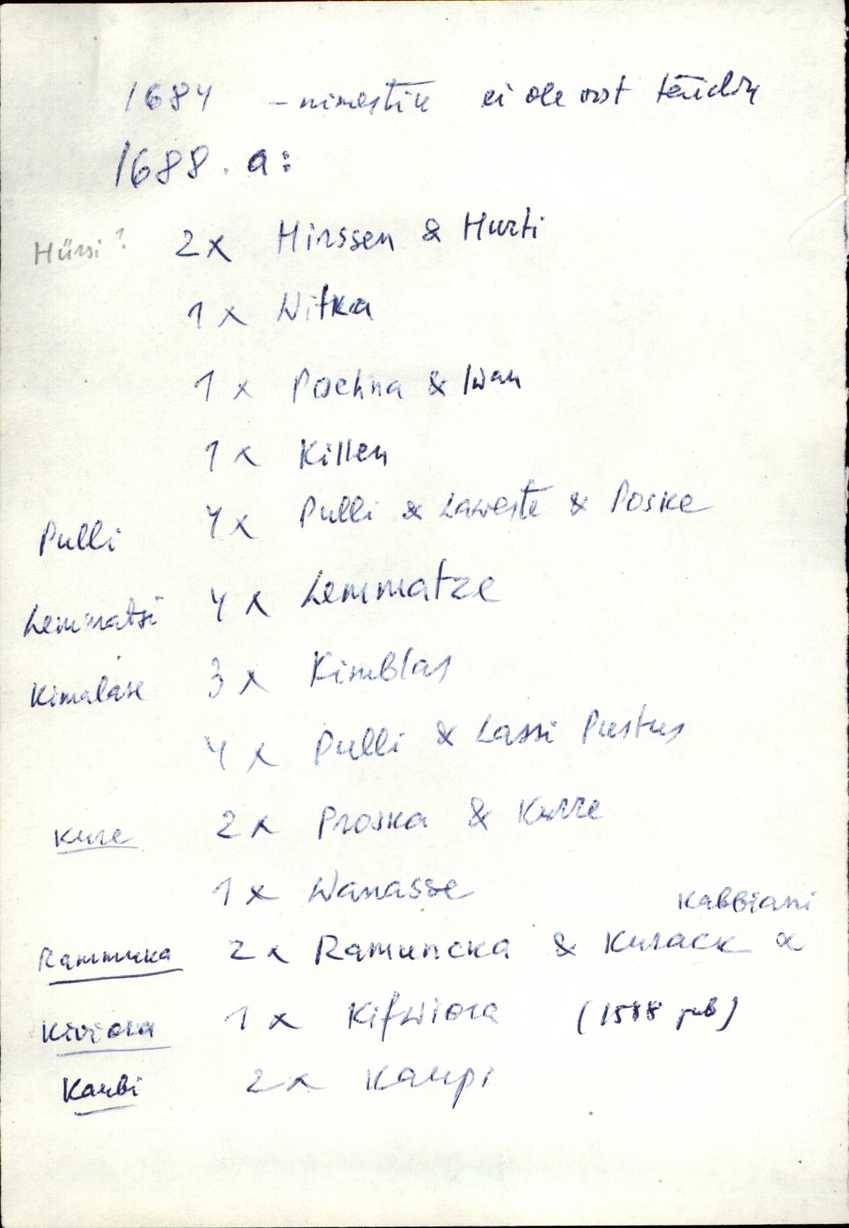 1684 - nimestik ei ole vist täielik
1688. a:
Hürsi? 2x Hirssen & Hurti
1 x Witka
1 x Poschna & Iwan
1 x Killen
Pulli 4x Pulli & Laweste & Poske
Lemmatsi 4 x Lemmatze
Kimalase 3 x Kimblas
4 x Pulli & Lassi Pustus
Kure 2 x Proska & Kurre
1 x Wanasse
Kabbiani
Rammuka 2 x Ramuncka & Kurack &
Kiviora 1 x Kifwiora (1588 jub)
Kaubi 2 x Kaupi